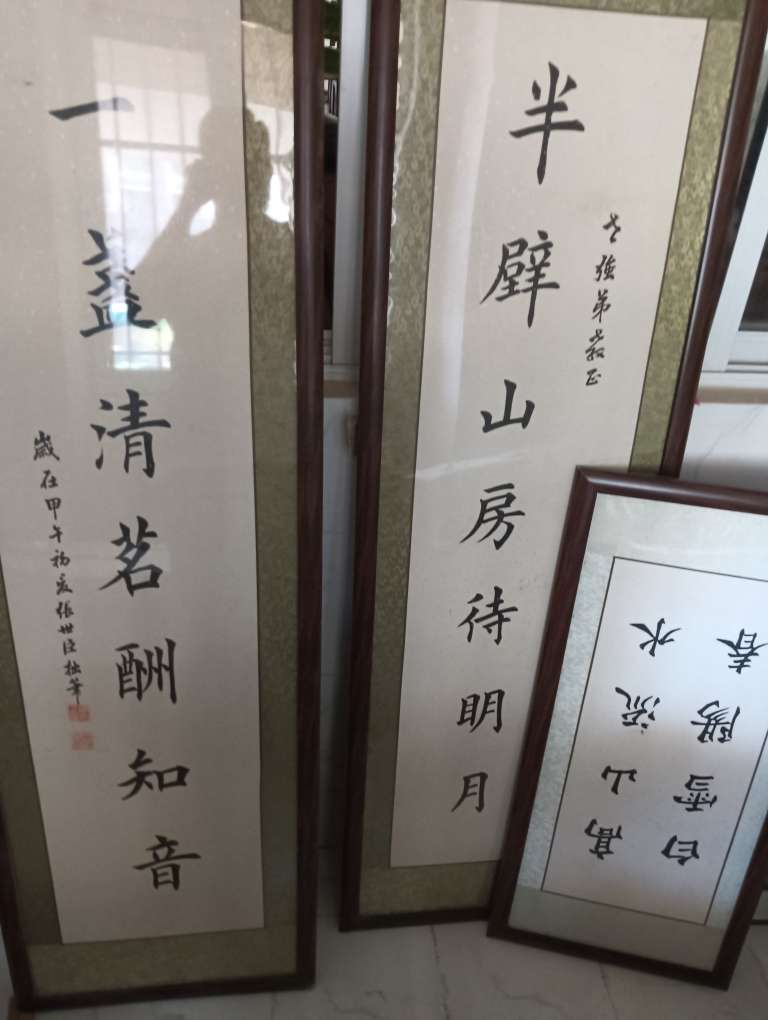 半壁山房待明月
強弟教正
一盞清茗酬知音
歲在甲午初夏張世臣拙筆
高山流水
白雪陽春